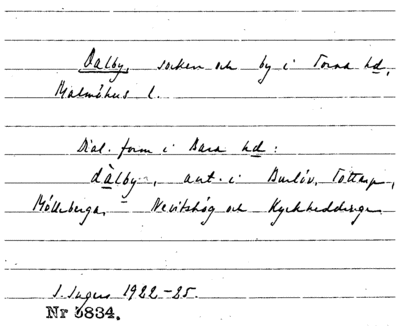 Dalby, socken och by i Torna hd,
Malmöhus l.
Dial. form i Bara hd:
dàlby, ant. i Burlöv, Tottarp,
Mölleberga, Nevitshög och Kyrkheddinge
I. Ingers 1922-25.
Nr 5834.